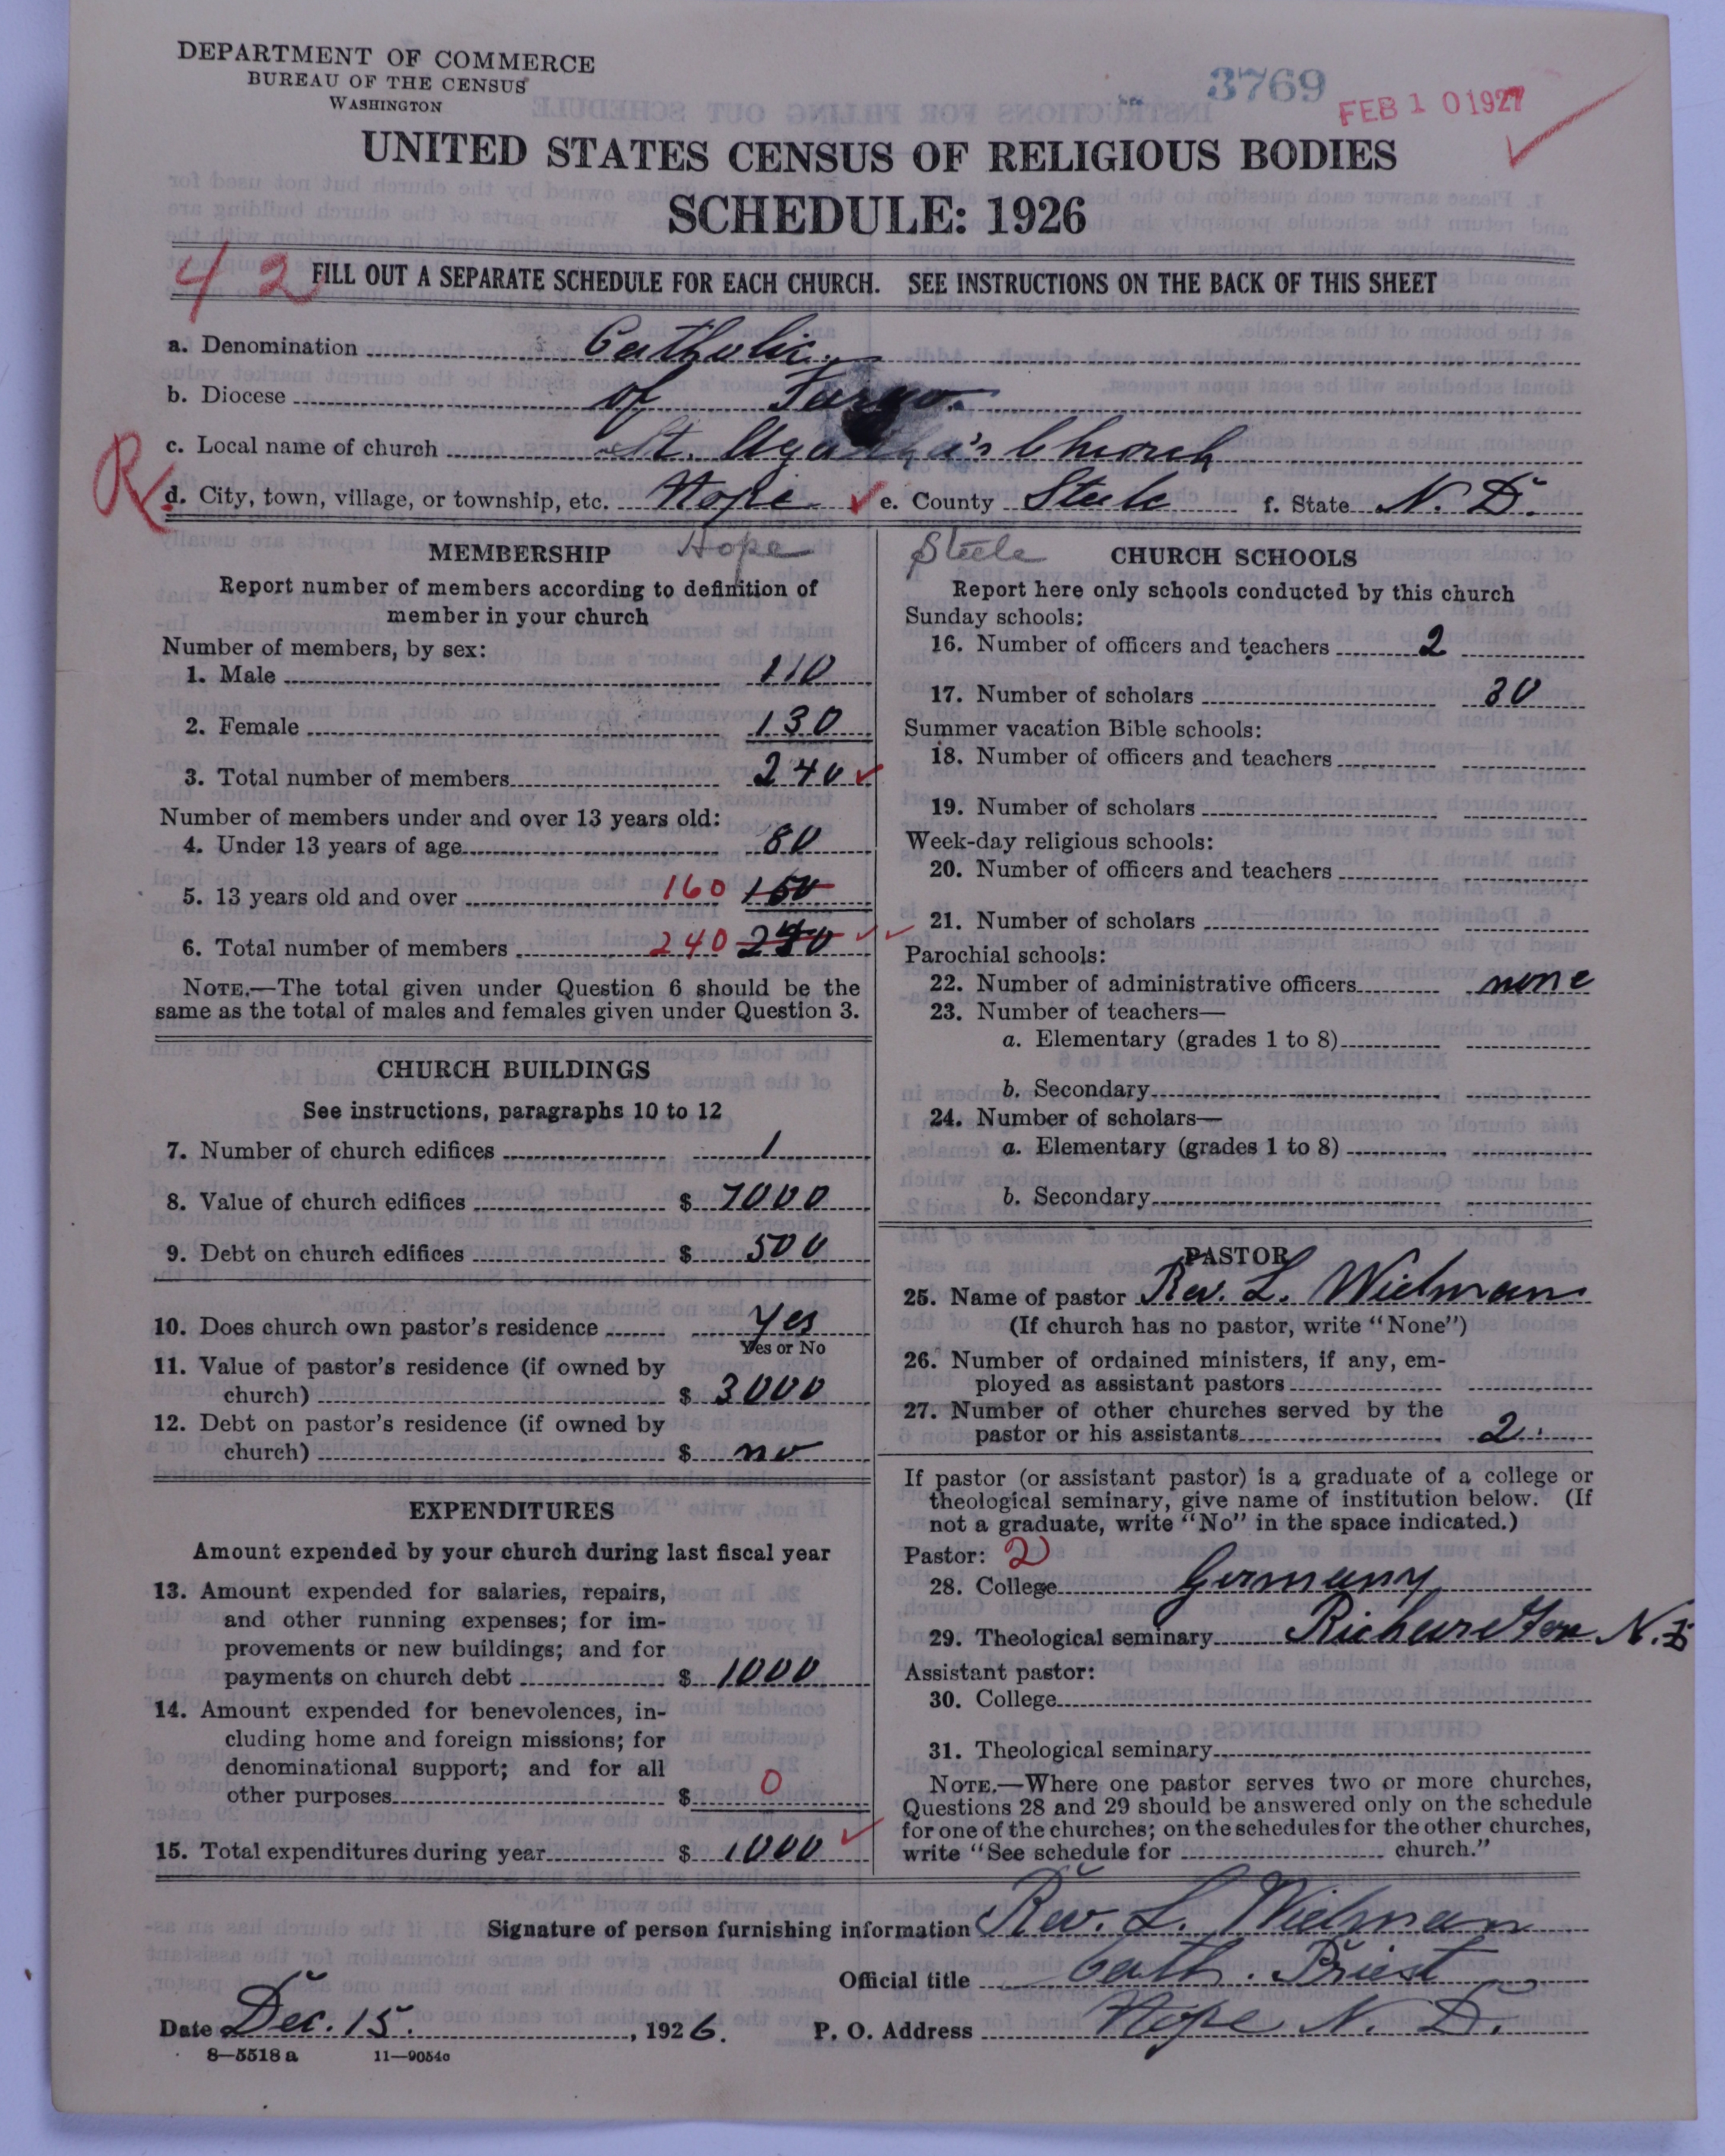 DEPARTMENT OF COMMERCE
BUREAU OF THE CENSUS
WASHINGTON
3769
FEB 10 1927
UNITED STATES CENSUS OF RELIGIOUS BODIES
SCHEDULE: 1926
42
FILL OUT A SEPARATE SCHEDULE FOR EACH CHURCH. SEE INSTRUCTIONS ON THE BACK OF THIS SHEET
a. Denomination Catholic
b. Diocese of Fargo.
c. Local name of church St. Agatha's Church
R
d. City, town, village, or township, etc. Hope e. County Steele f. State N. D.
MEMBERSHIP Hope
Report number of members according to definition of
member in your church
Number of members, by sex:
1. Male 110
2. Female 130
3. Total number of members 240
Number of members under and over 13 years old:
4. Under 13 years of age 80
5. 13 years old and over 160 150
6. Total number of members 240
NOTE.—The total given under Question 6 should be the
same as the total of males and females given under Question 3.
CHURCH BUILDINGS
See instructions, paragraphs 10 to 12
7. Number of church edifices 1
8. Value of church edifices $ 7000
9. Debt on church edifices $ 500
10. Does church own pastor's residence Yes
Yes or No
11. Value of pastor's residence (if owned by
church) $ 3000
12. Debt on pastor's residence (if owned by
church) $ no
EXPENDITURES
Amount expended by your church during last fiscal year
13. Amount expended for salaries, repairs,
and other running expenses; for im-
provements or new buildings; and for
payments on church debt $ 1000
14. Amount expended for benevolences, in-
cluding home and foreign missions; for
denominational support; and for all
other purposes $ 0
15. Total expenditures during year $ 1000
Steele CHURCH SCHOOLS
Report here only schools conducted by this church
Sunday schools:
16. Number of officers and teachers 2
17. Number of scholars 30
Summer vacation Bible schools:
18. Number of officers and teachers
19. Number of scholars
Week-day religious schools:
20. Number of officers and teachers
21. Number of scholars
Parochial schools:
22. Number of administrative officers none
23. Number of teachers—
a. Elementary (grades 1 to 8)
b. Secondary
24. Number of scholars—
a. Elementary (grades 1 to 8)
b. Secondary
PASTOR
25. Name of pastor Rev. L. Wielman
(If church has no pastor, write "None")
26. Number of ordained ministers, if any, em-
ployed as assistant pastors
27. Number of other churches served by the
pastor or his assistants 2
If pastor (or assistant pastor) is a graduate of a college or
theological seminary, give name of institution below. (If
not a graduate, write "No" in the space indicated.)
Pastor: 2
28. College Germany
29. Theological seminary Richardton N. D
Assistant pastor:
30. College
31. Theological seminary
NOTE.—Where one pastor serves two or more churches,
Questions 28 and 29 should be answered only on the schedule
for one of the churches; on the schedules for the other churches,
write "See schedule for church."
Signature of person furnishing information Rev. L. Wielman
Official title Cath. Priest
Date Dec. 15. , 1926. P. O. Address Hope N. D.
8—5518 a 11—9054c